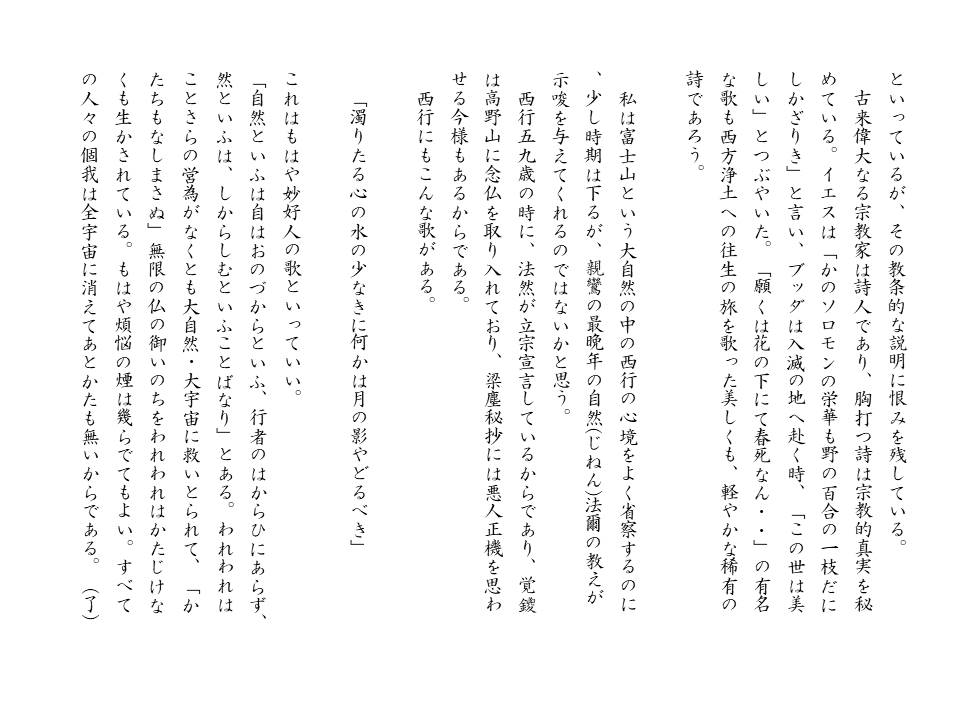 といっているが、その教条的な説明に恨みを残している。
古来偉大なる宗教家は詩人であり、胸打つ詩は宗教的真実を秘
めている。イエスは「かのソロモンの栄華も野の百合の一枝だに
しかざりき」と言い、ブッダは入滅の地へ赴く時、「この世は美
しい」とつぶやいた。「願くは花の下にて春死なん・・」の有名
な歌も西方浄土への往生の旅を歌った美しくも、軽やかな稀有の
詩であろう。
私は富士山という大自然の中の西行の心境をよく省察するのに
、少し時期は下るが、親鸞の最晩年の自然(じねん)法爾の教えが
示唆を与えてくれるのではないかと思う。
西行五九歳の時に、法然が立宗宣言しているからであり、覚鑁
は高野山に念仏を取り入れており、梁塵秘抄には悪人正機を思わ
せる今様もあるからである。
西行にもこんな歌がある。
「濁りたる心の水の少なきに何かは月の影やどるべき」
これはもはや妙好人の歌といっていい。
「自然といふは自はおのづからといふ、行者のはからひにあらず、
然といふは、しからしむといふことばなり」とある。われわれは
ことさらの営為がなくとも大自然・大宇宙に救いとられて、「か
たちもなしまさぬ」無限の仏の御いのちをわれわれはかたじけな
くも生かされている。もはや煩悩の煙は幾らでてもよい。すべて
の人々の個我は全宇宙に消えてあとかたも無いからである。(了)